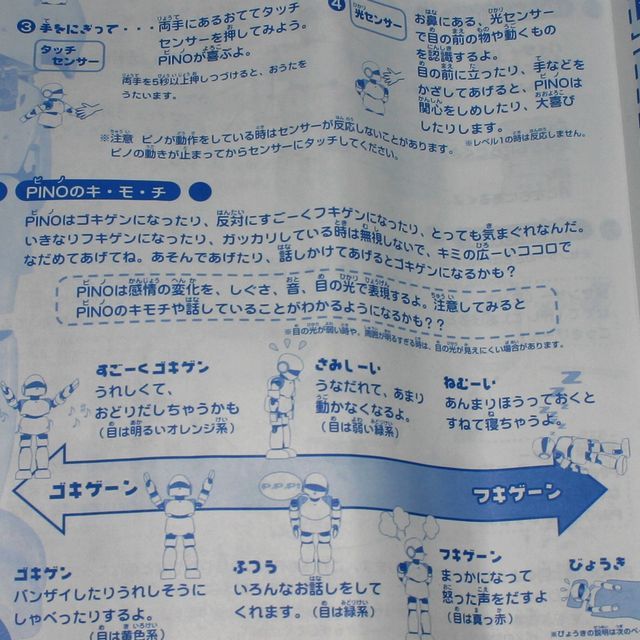 ③ 手をにぎって・・・両手にあるおててタッチ
センサーを押してみよう。
PINOが喜ぶよ。
タッチ
センサー
両手を5秒以上押しつづけると、おうたを
うたいます。
④ 光センサー
お鼻にある、光センサー
で目の前の物や動くもの
を認識するよ。
目の前に立ったり、手などを
かざしてあげると、PINOは
関心をしめしたり、大喜び
したりします。
※レベル1の時は反応しません。
※注意 ピノが動作をしている時はセンサーが反応しないことがあります。
ピノの動きが止まってからセンサーにタッチしてください。
PINOのキ・モ・チ
PINOはゴキゲンになったり、反対にすごーくフキゲンになったり、とっても気まぐれなんだ。
いきなりフキゲンになったり、ガッカリしている時は無視しないで、キミの広ーいココロで
なだめてあげてね。あそんであげたり、話しかけてあげるとゴキゲンになるかも?
PINOは感情の変化を、しぐさ、音、目の光で表現するよ。注意してみると
PINOのキモチや話していることがわかるようになるかも??
※目の光が弱い時や、周囲が明るすぎる時は、目の光が見えにくい場合があります。
すごーくゴキゲン
うれしくて、
おどりだしちゃうかも
(目は明るいオレンジ系)
さみしーい
うなだれて、あまり
動かなくなるよ。
(目は弱い緑系)
ねむーい
あんまりほうっておくと
すねて寝ちゃうよ。
ZZZ
ゴキゲーン
P.P.P!
フキゲーン
ゴキゲン
バンザイしたりうれしそうに
しゃべったりするよ。
(目は黄色系)
ふつう
いろんなお話しをして
くれます。(目は緑系)
フキゲーン
まっかになって
怒った声をだすよ
(目は真っ赤)
びょうき
※びょうきの説明は次のペ